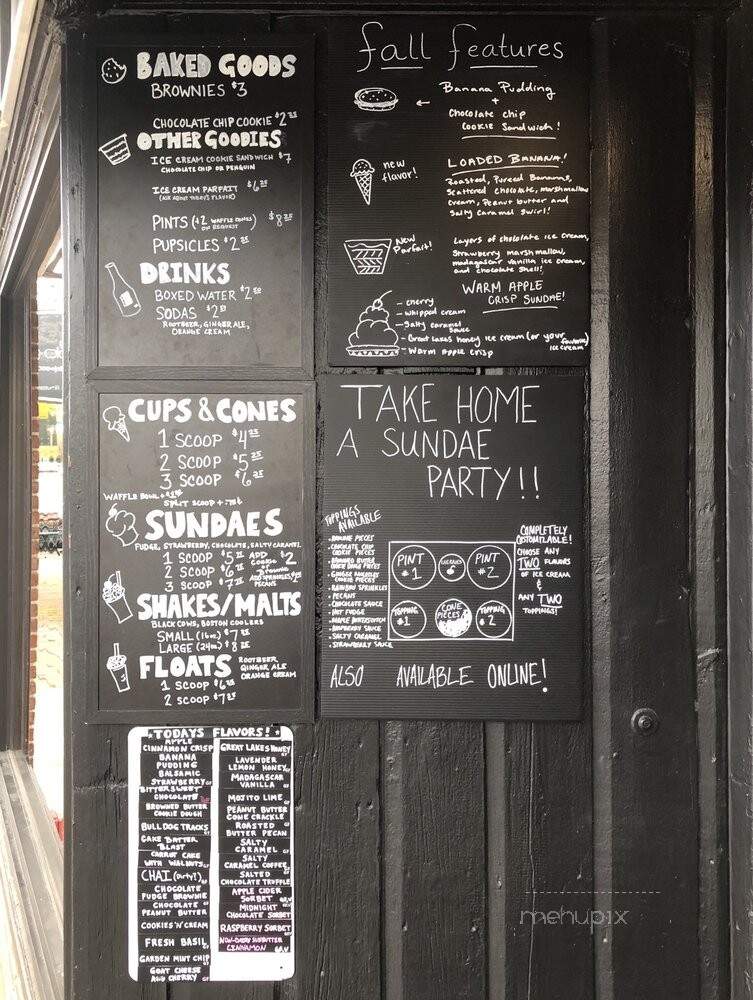 BAKED GOODS
BROWNIES $3
CHOCOLATE CHIP COOKIE $2
OTHER GOODIES
ICE CREAM COOKIE SANDWICH $7
CHOCOLATE CHIP OR PENGUIN
ICE CREAM PARFAIT $6
(ASK ABOUT TODAY'S FLAVOR)
PINTS (+2 WAFFLE CONES ON REQUEST) $8
PUPSICLES $2
DRINKS
BOXED WATER $2
SODAS $2
ROOTBEER, GINGER ALE,
ORANGE CREAM
fall features
Banana Pudding
+
Chocolate chip
COOKIE Sandwich!
new
flavor!
LOADED BANANA!
Roasted, Pureed Bananas,
Scattered chocolate, marshmallow
cream, Peanut butter and
Salty Caramel Swirl!
New
Parfait!
Layers of chocolate ice cream,
Strawberry marshmallow,
madagascar vanilla ice cream,
and chocolate shell!
WARM APPLE
CRISP SUNDAE!
- cherry
- whipped cream
- Salty caramel
sauce
- Great Lakes honey ice cream (or your favorite ice cream)
- Warm apple crisp
CUPS & CONES
1 SCOOP $4
2 SCOOP $5
3 SCOOP $6
WAFFLE BOWL +
SPLIT SCOOP +
SUNDAES
FUDGE, STRAWBERRY, CHOCOLATE, SALTY CARAMEL
1 SCOOP $5
2 SCOOP $6
3 SCOOP $7
ADD
COOKIE OR $2
Brownie
ADD SPRINKLES
PECANS
SHAKES/MALTS
BLACK COWS, BOSTON COOLERS
SMALL (16oz) $7
LARGE (24oz) $8
FLOATS
ROOTBEER
GINGER ALE
ORANGE CREAM
1 SCOOP $6
2 SCOOP $7
TAKE HOME
A SUNDAE
PARTY!!
TOPPINGS
AVAILABLE
- BROWNIE PIECES
- CHOCOLATE CHIP
COOKIE PIECES
- BROWNED BUTTER
COOKIE DOUGH PIECES
COOKIE PIECES
- RAINBOW SPRINKLES
- PECANS
- CHOCOLATE SAUCE
- HOT FUDGE
- MAPLE BUTTERSCOTCH
- RASPBERRY SAUCE
- SALTY CARAMEL
- STRAWBERRY SAUCE
PINT
#1
CHERRIES
PINT
#2
TOPPING
#1
CONE
PIECES
TOPPING
#2
COMPLETELY
CUSTOMIZABLE!
CHOOSE ANY
TWO FLAVORS
OF ICE CREAM
&
ANY TWO
TOPPINGS!
ALSO AVAILABLE ONLINE!
TODAYS FLAVORS!
APPLE
CINNAMON CRISP
BANANA
PUDDING
BALSAMIC
STRAWBERRY GF
BITTERSWEET
CHOCOLATE
BROWNED BUTTER
COOKIE DOUGH
BULLDOG TRACKS
CAKE BATTER
BLAST
CARROT CAKE
WITH WALNUTS
CHAI (Dirty!)
CHOCOLATE
FUDGE BROWNIE
CHOCOLATE
PEANUT BUTTER
COOKIES 'N' CREAM
FRESH BASIL
GARDEN MINT CHIP
GOAT CHEESE
AND CHERRY
GREAT LAKES HONEY
LAVENDER
LEMON HONEY
MADAGASCAR
VANILLA
MOJITO LIME
PEANUT BUTTER
CONE CRACKLE
ROASTED
BUTTER PECAN
SALTY
CARAMEL
SALTY
CARAMEL COFFEE
SALTED
CHOCOLATE TRUFFLE
APPLE CIDER
SORBET
MIDNIGHT
CHOCOLATE SORBET
RASPBERRY SORBET
NON-DAIRY SUNBUTTER
CINNAMON
mehupix